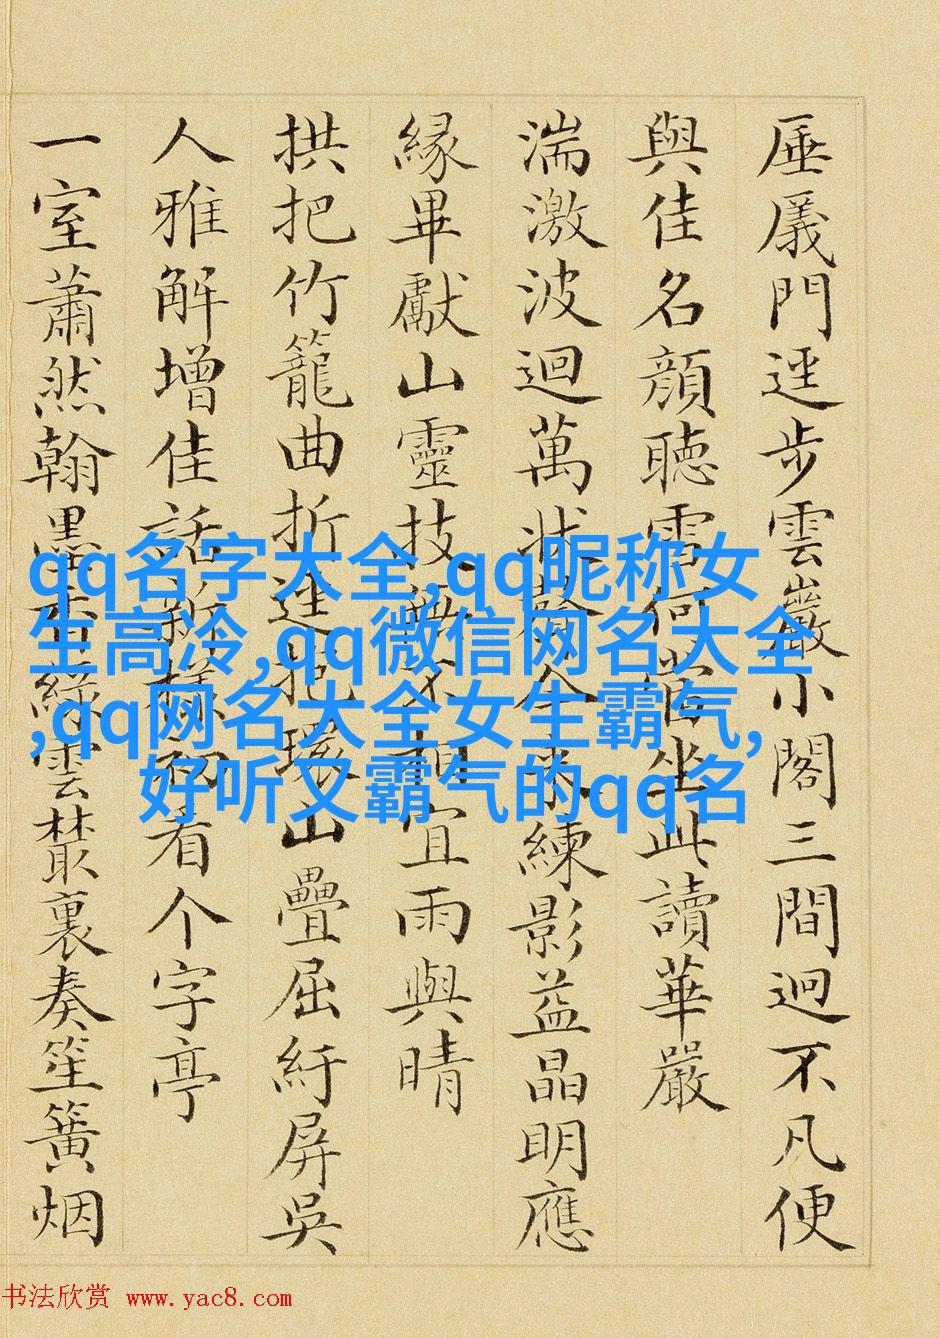 厜㕒門逕步雲巖小閣三間迥不凡便
與佳名顏聽雪何當坐此讀華嚴
湍激波迴萬狀練影益晶明應
緣畢獻山靈技無不相宜雨與晴
拱把竹籠曲折逕山疊屈紆屏吳
人雅解增佳話新看个字亭
一室蕭然翰墨香綠雲叢裏奏笙簧烟
qq名字大全,qq昵称女
生高冷,qq微信网名大全
,qq网名大全女生霸气,
好听又霸气的qq名
书法欣赏 www.yac8.com